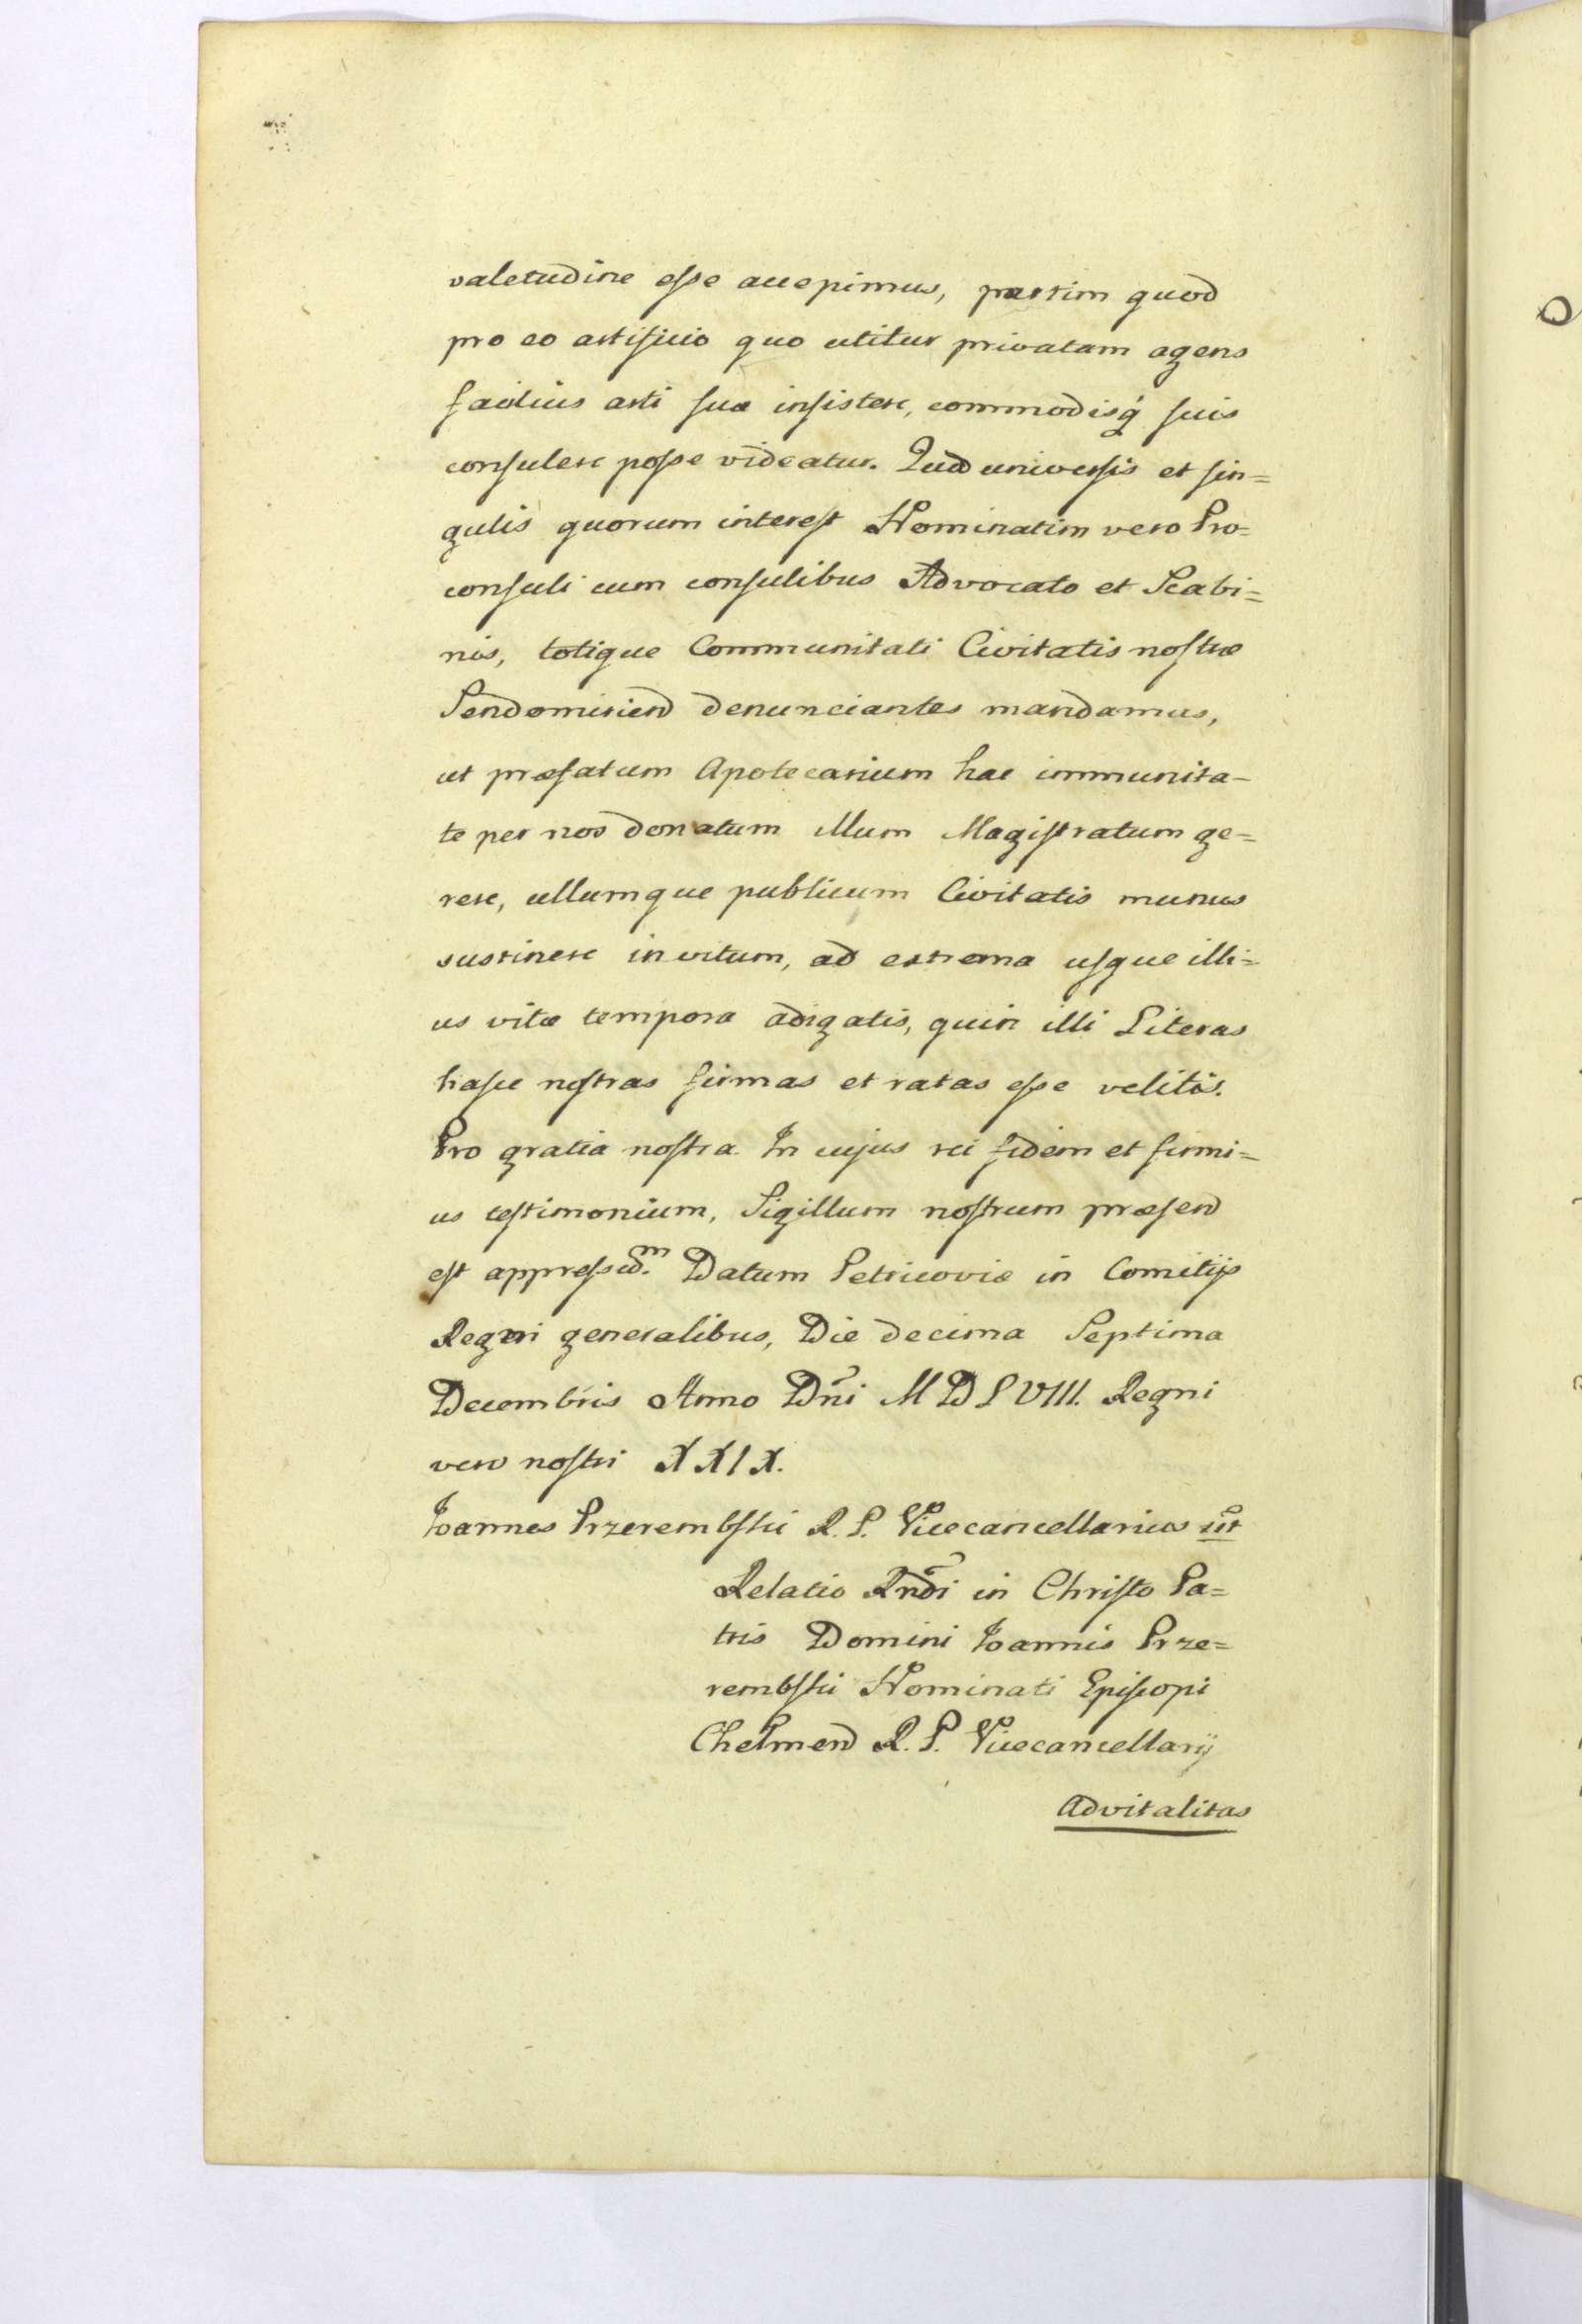 valetudine esse accepimus, partim quod
pro eo artificio quo utitur privatam agens
facilius arti suæ insistere, commodisq́ suis
consulere posse videatur. Quod universis et sin=
gulis quorum interest Nominatim vero Pro=
consuli cum consulibus Advocato et Scabi=
nis, totique Communitati Civitatis nostræ
Sendomirien denunciantes mandamus,
ut præfatum Apotecarium hac immunita-
te per nos donatum illum Magistratum ge=
rere, ullumque publicum Civitatis munus
sustinere invitum, ad extrema usque illi=
us vitæ tempora adigatis, quin illi Literas
hasce nostras firmas et ratas esse velitis.
Pro gratia nostra. In cujus rei fidem et firmi=
us testimonium, Sigillum nostrum præsen
est appressu.m Datum Petricoviæ in Comitijs
Regni generalibus, Die decima Septima
Decembris Anno Dn̄i MDLVIII. Regni
vero nostri XXIX.
Ioannes Przerembski R. P. Vicecancellarius sst
Relatio Rn̄di in Christo Pa=
tris Domini Ioannis Prze=
rembski Nominati Episcopi
Chelmen R. P. Vicecancellarij
Advitalitas